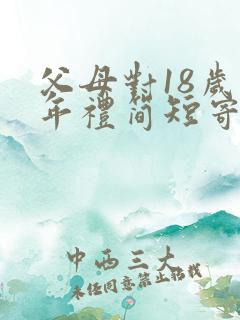 父母對18歲
年禮簡短寄
中西三大
未经同意禁止转载